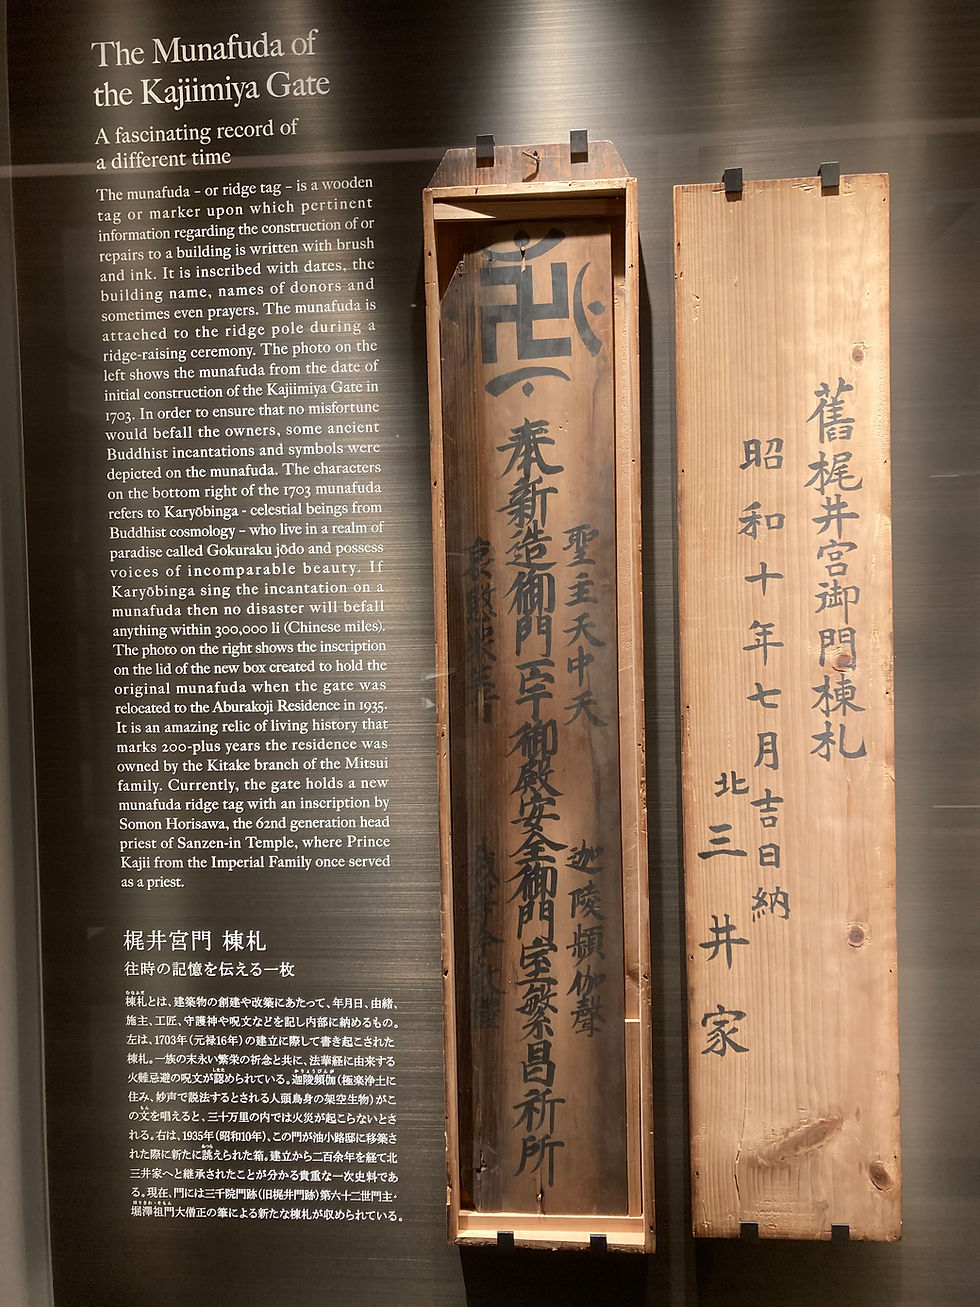 The Munafuda of
the Kajiimiya Gate
A fascinating record of
a different time
The munafuda – or ridge tag – is a wooden
tag or marker upon which pertinent
information regarding the construction of or
repairs to a building is written with brush
and ink. It is inscribed with dates, the
building name, names of donors and
sometimes even prayers. The munafuda is
attached to the ridge pole during a
ridge-raising ceremony. The photo on the
left shows the munafuda from the date of
initial construction of the Kajiimiya Gate in
1703. In order to ensure that no misfortune
would befall the owners, some ancient
Buddhist incantations and symbols were
depicted on the munafuda. The characters
on the bottom right of the 1703 munafuda
refers to Karyōbinga - celestial beings from
Buddhist cosmology – who live in a realm of
paradise called Gokuraku jōdo and possess
voices of incomparable beauty. If
Karyōbinga sing the incantation on a
munafuda then no disaster will befall
anything within 300,000 li (Chinese miles).
The photo on the right shows the inscription
on the lid of the new box created to hold the
original munafuda when the gate was
relocated to the Aburakoji Residence in 1935.
It is an amazing relic of living history that
marks 200-plus years the residence was
owned by the Kitake branch of the Mitsui
family. Currently, the gate holds a new
munafuda ridge tag with an inscription by
Somon Horisawa, the 62nd generation head
priest of Sanzen-in Temple, where Prince
Kajii from the Imperial Family once served
as a priest.
梶井宮門 棟札
往時の記憶を伝える一枚
棟札とは、建築物の創建や改築にあたって、年月日、由緒、
施主、工匠、守護神や呪文などを記し内部に納めるもの。
左は、1703年（元禄16年）の建立に際して書き起こされた
棟札。一族の末永い繁栄の祈念と共に、法華経に由来する
火難忌避の呪文が認められている。迦陵頻伽（極楽浄土に
住み、妙声で説法するとされる人頭鳥身の架空生物）がこ
の文を唱えると、三十万里の内では火災が起こらないとさ
れる。右は、1935年（昭和10年）、この門が油小路邸に移築さ
れた際に新たに誂えられた箱。建立から二百余年を経て北
三井家へと継承されたことが分かる貴重な一次史料であ
る。現在、門には三千院門跡（旧梶井門跡）第六十二世門主・
堀澤祖門大僧正の筆による新たな棟札が収められている。
聖主天中天
迦陵頻伽聲
奉新造御門
御殿安全御門室繁昌祈所
哀愍衆生者
舊梶井宮御門棟札
昭和十年七月吉日納
北三井家